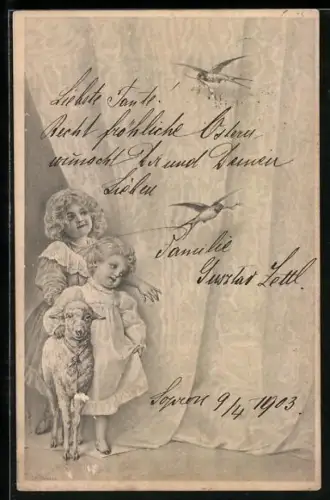 Liebste Tante!
Recht fröhliche Ostern
wünscht Dir und Deinen
Lieben
Familie
Gustav Zettl.
Sopron 9/4 1903.